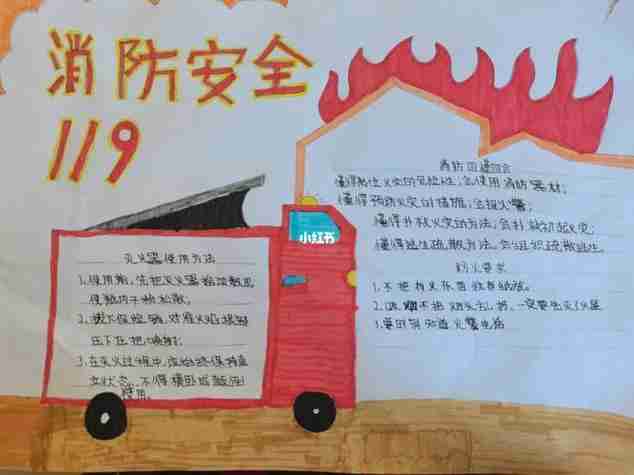 消防安全
119
消防四懂四会
懂得岗位火灾的危险性,会使用消防器材;
懂得预防火灾的措施,会报火警;
懂得扑救火灾的方法,会扑救初起火灾;
懂得逃生疏散方法,会组织疏散逃生。
防火要求
1.不把有火
2.不把烟头乱扔,一定要
3.要时刻知道火警电话
灭火器使用方法
1.使用前,先把灭火器摇动数次
使瓶内干粉松散。
2.拔下保险销,对准火焰根部
压下压把喷射;
3.在灭火过程中,应始终保持直
立状态,不得横卧或颠倒
使用。
小红书